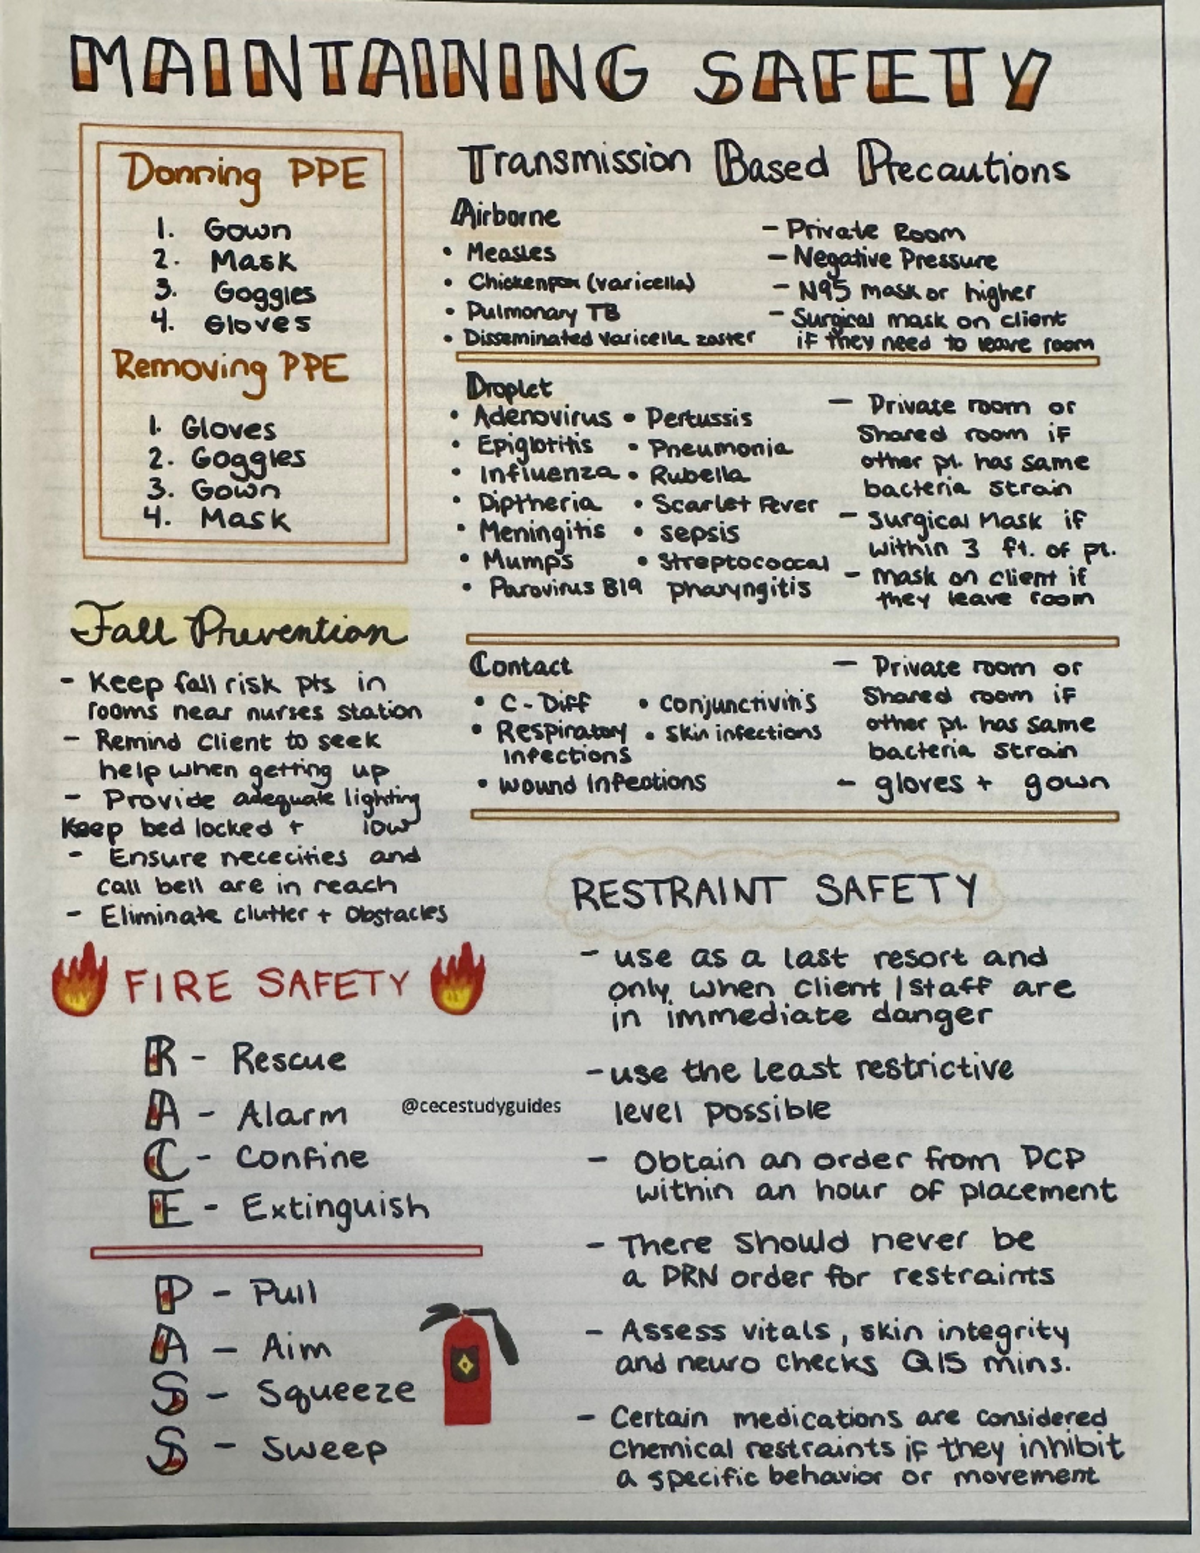 MAINTAINING SAFETY
Donning PPE
1. Gown
2. Mask
3. Goggles
4. Gloves
Removing PPE
1. Gloves
2. Goggles
3. Gown
4. Mask
Transmission Based Precautions
Airborne
• Measles
• Chickenpox (varicella)
• Pulmonary TB
• Disseminated varicella zoster
- Private Room
- Negative Pressure
- N95 mask or higher
- Surgical mask on client
if they need to leave room
Droplet
• Adenovirus
• Epiglotitis
• Influenza
• Diptheria
• Meningitis
• Mumps
• Parovirus B19
• Pertussis
• Pneumonia
• Rubella
• Scarlet Fever
• sepsis
• Streptococcal
pharyngitis
- Private room or
Shared room if
other pt. has same
bacteria strain
- Surgical Mask if
within 3 ft. of pt.
- mask on client if
they leave room
Contact
• C-Diff
• Respiratory
Infections
• Wound Infections
• Conjunctivitis
• Skin infections
- Private room or
Shared room if
other pt. has same
bacteria strain
- gloves + gown
Fall Prevention
- Keep fall risk pts in
rooms near nurses station
- Remind client to seek
help when getting up
- Provide adequate lighting
Keep bed locked + low
- Ensure nececities and
call bell are in reach
- Eliminate clutter + Obstacles
FIRE SAFETY
R - Rescue
A - Alarm
C - Confine
E - Extinguish
@cecestudyguides
P - Pull
A - Aim
S - Squeeze
S - Sweep
RESTRAINT SAFETY
- use as a last resort and
only when client/staff are
in immediate danger
- use the least restrictive
level possible
- Obtain an order from PCP
within an hour of placement
- There should never be
a PRN order for restraints
- Assess vitals, skin integrity
and neuro checks Q15 mins.
- Certain medications are considered
Chemical restraints if they inhibit
a specific behavior or movement